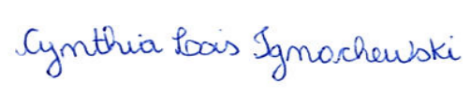 Cynthia Lois Ignachewski